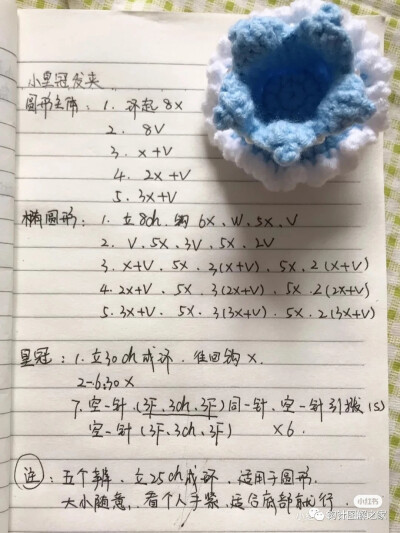 小皇冠发夹
圆形主体：1. 环起8X
2. 8V
3. X+V
4. 2X+V
5. 3X+V
椭圆形：1. 立8ch, 钩6X、W、5X、V
2. V、5X、3V、5X、2V
3. X+V、5X、3(X+V)、5X、2(X+V)
4. 2X+V、5X、3(2X+V)、5X、2(2X+V)
5. 3X+V、5X、3(3X+V)、5X、2(3X+V)
皇冠：1. 立30ch成环，往回钩X.
2-6. 30X
7. 空一针(3F、3ch、3F)同一针、空一针引拔(S)
空一针(3F、3ch、3F) X6.
注：五个瓣、立25ch成环，适用于圆形.
大小随意，看个人手紧，适合底部就行.
小红书
钩针图解之家